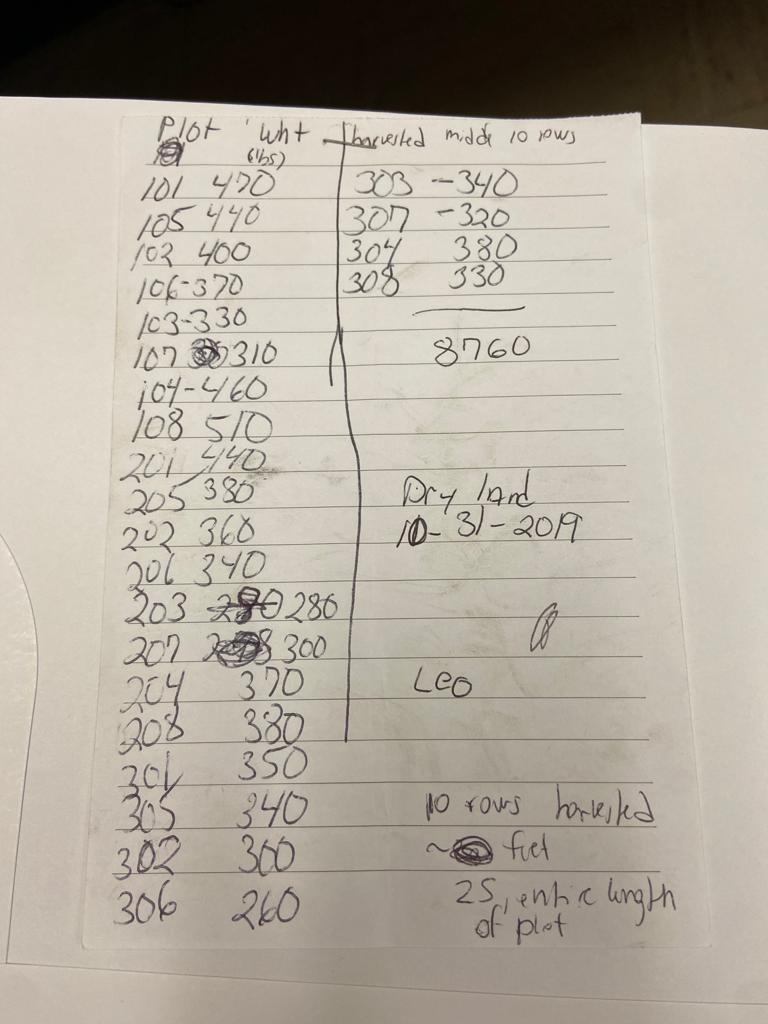 Plot Wht
(lbs)
101 470
105 440
102 400
106-370
103-330
107 310
104-460
108 510
201 440
205 380
202 360
206 340
203 280 280
207 300
204 370
208 380
301 350
305 340
302 300
306 260
harvested middle 10 rows
303 -340
307 -320
304 380
308 330
8760
Dry land
10-31-2019
Leo
10 rows harvested
~ feet
25, entire length
of plot